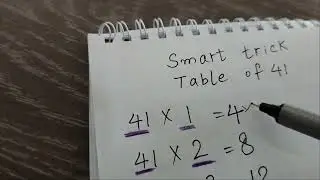 Smart trick
Table of 41
41 × 1 = 4
41 × 2 = 8